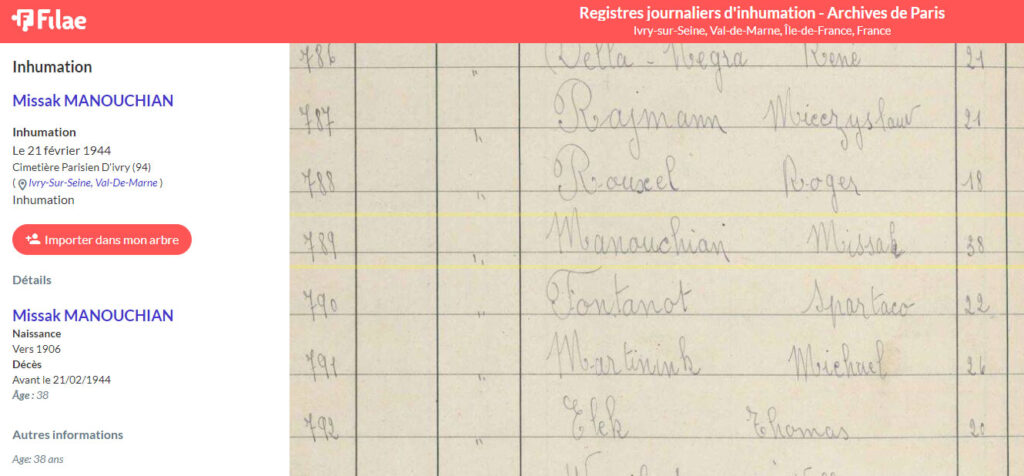 Filae
Registres journaliers d'inhumation - Archives de Paris
Ivry-sur-Seine, Val-de-Marne, Île-de-France, France
Inhumation
Missak MANOUCHIAN
Inhumation
Le 21 février 1944
Cimetière Parisien D'ivry (94)
( Ivry-Sur-Seine, Val-De-Marne )
Inhumation
Importer dans mon arbre
Détails
Missak MANOUCHIAN
Naissance
Vers 1906
Décès
Avant le 21/02/1944
Âge : 38
Autres informations
Age: 38 ans
786 " Della-Negra René 21
787 " Rajmann Mieczyslaw 21
788 " Rouxel Roger 18
789 " Manouchian Missak 38
790 " Fontanot Spartaco 22
791 " Martinink Michael 26
792 " Elek Thomas 20